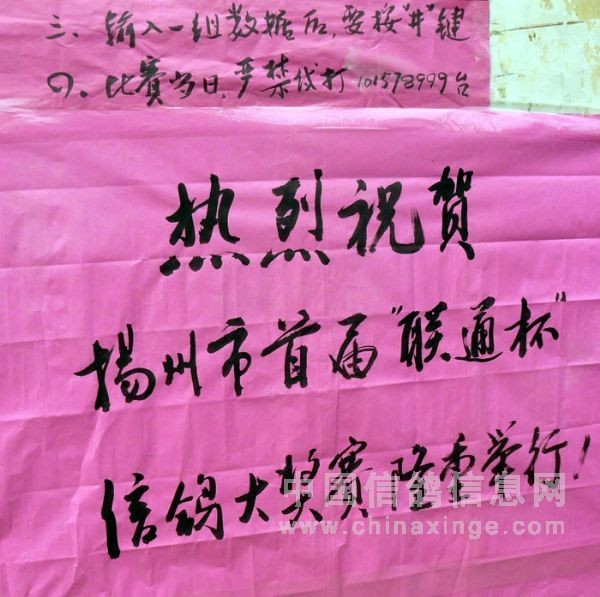 三、输入一组数据后,要按"井"键
四、比赛当日,严禁代打101573999台
热烈祝贺
揚州市首届"联通杯"
信鸽大奖赛隆重举行!
中国信鸽信息网
www.chinaxinge.com